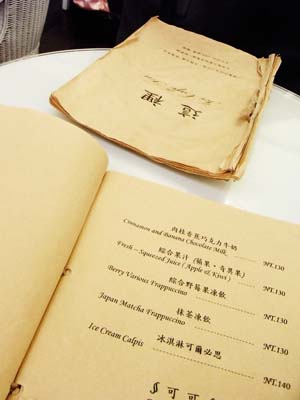 這裡
肉桂香蕉巧克力牛奶
Cinnamon and Banana Chocolate Milk NT.130
綜合果汁 (蘋果、奇異果)
Fresh - Squeezed Juice (Apple & Kiwi) NT.130
綜合野莓果凍飲
Berry Various Frappuccino NT.130
抹茶凍飲
Japan Matcha Frappuccino NT.130
冰淇淋可爾必思
Ice Cream Calpis NT.140
可可